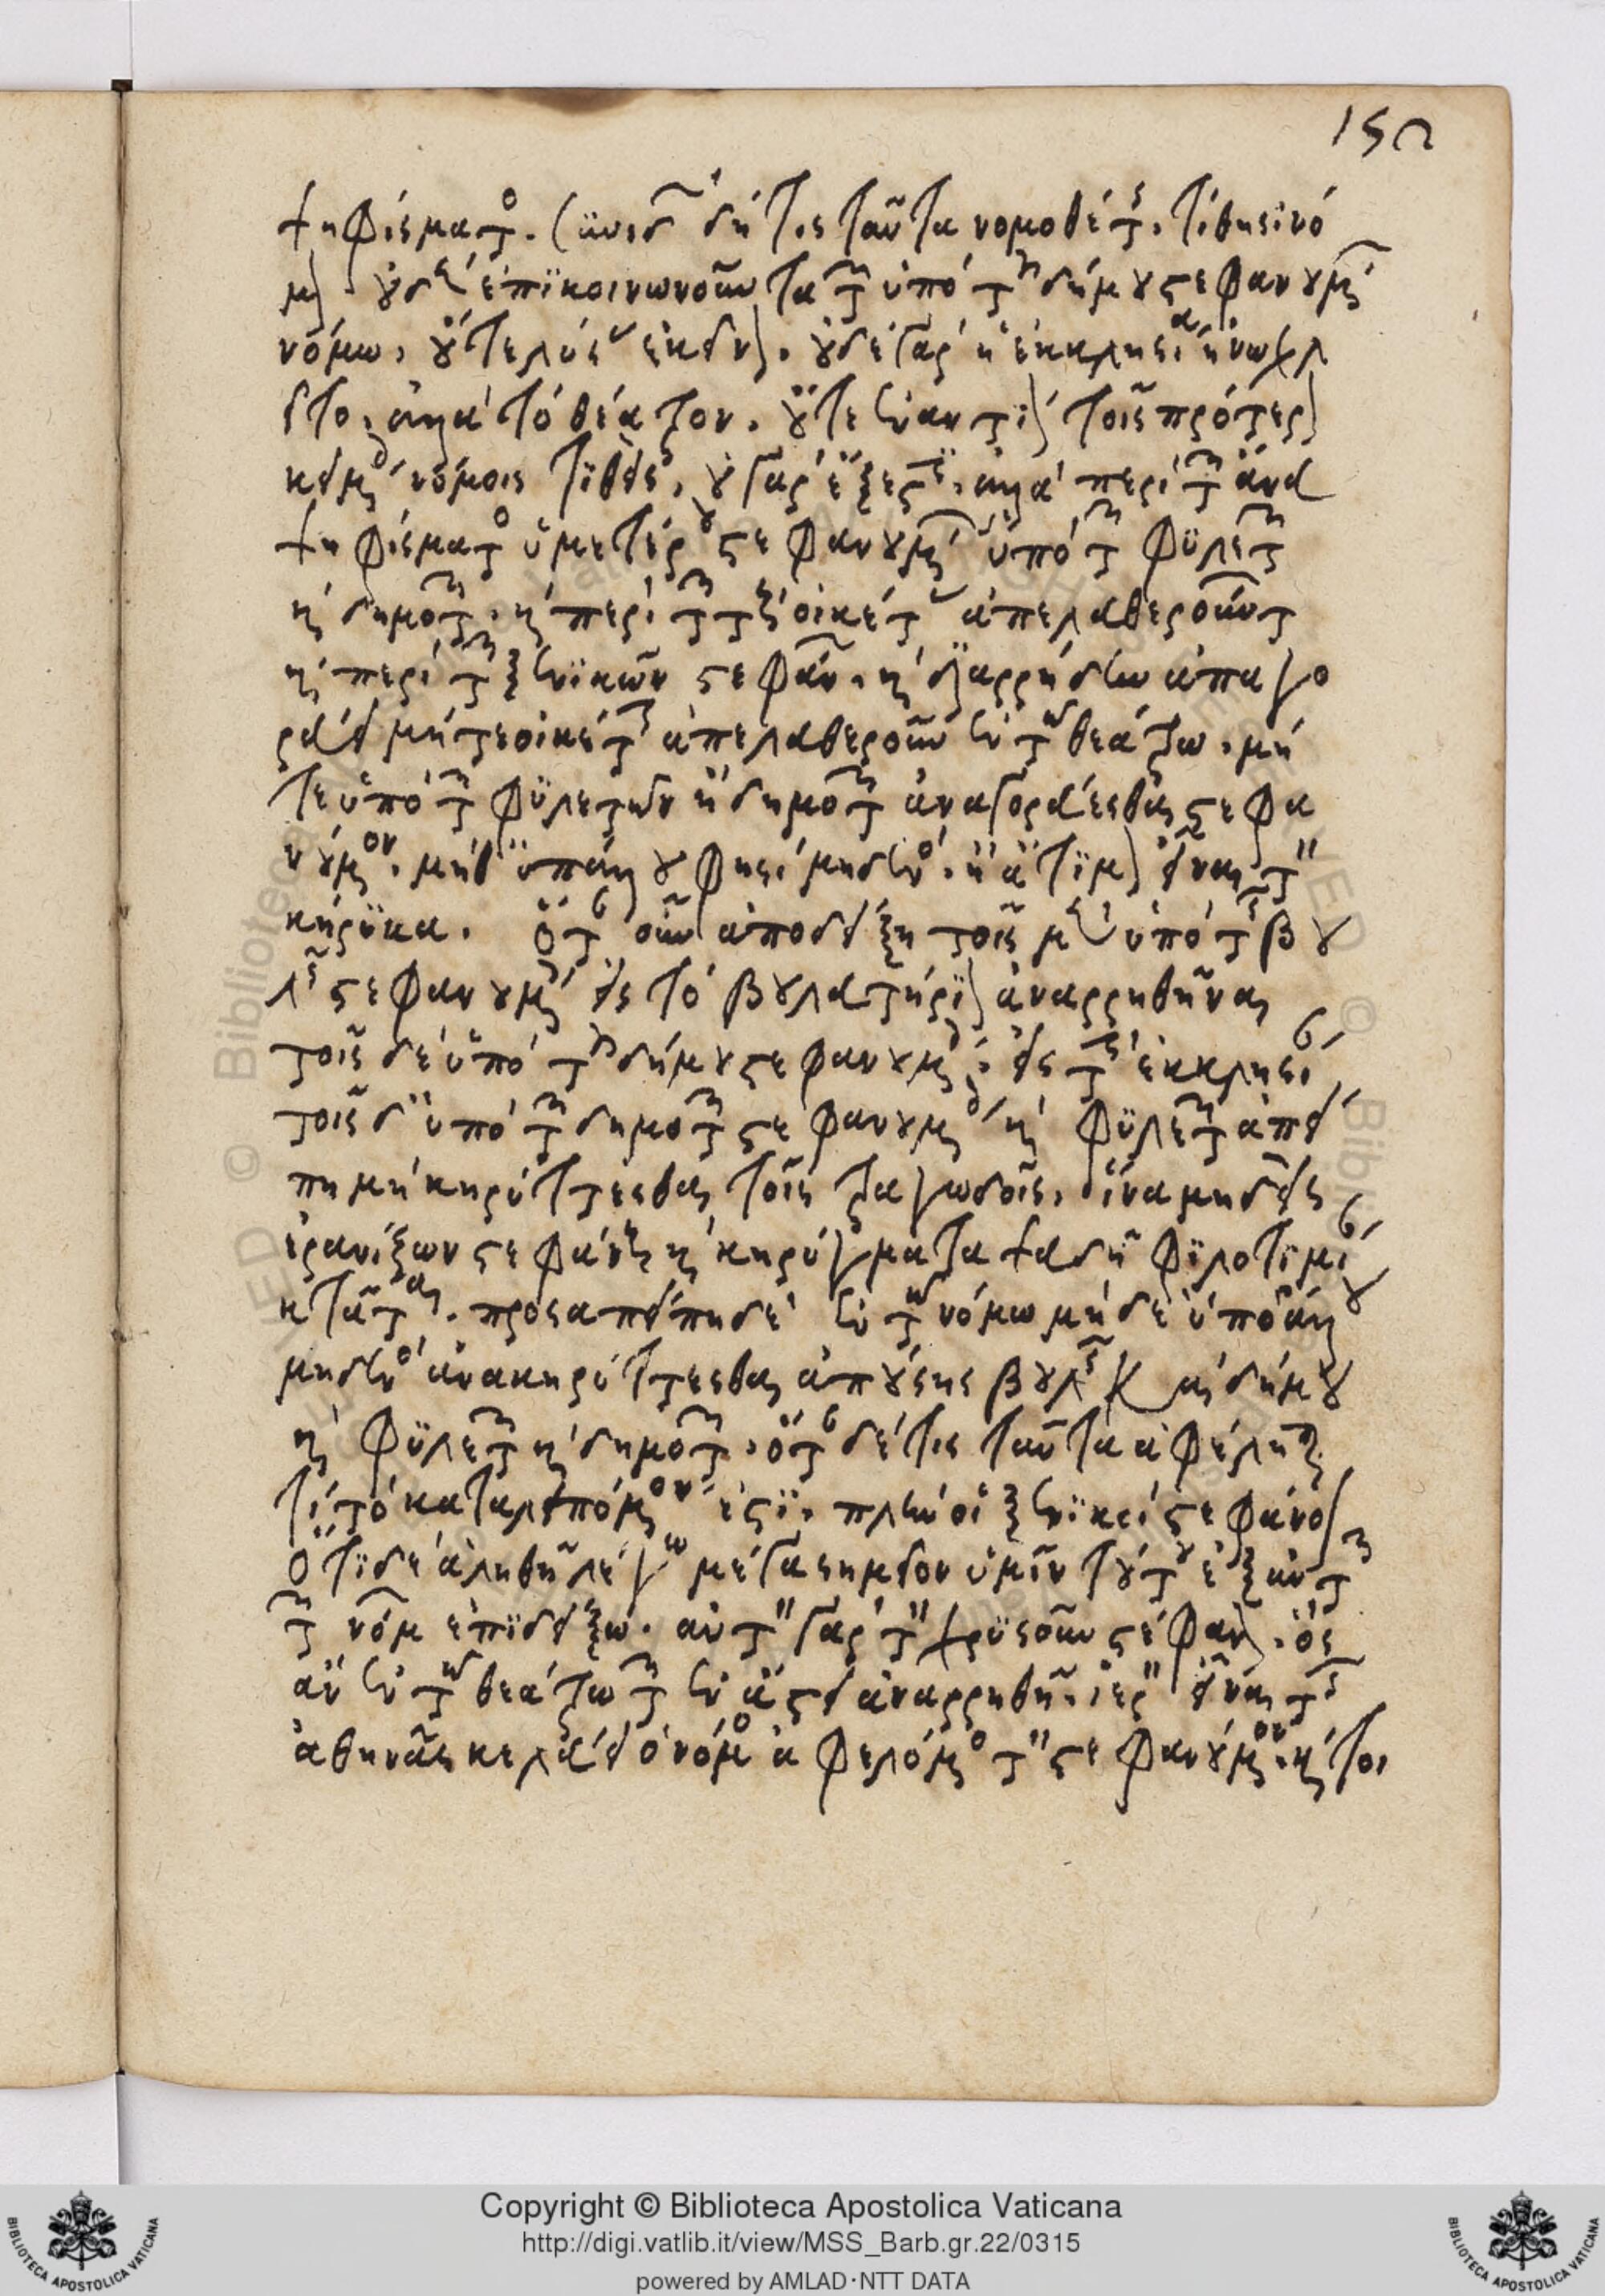 152
ψηφίσματος. συνιδὼν δή τις ταῦτα νομοθέτης, τίθησι νό
μον οὐδὲν ἐπικοινωνοῦντα τῶν ὑπὸ τοῦ δήμου στεφανουμένων
νόμῳ, οὔτε λύσας ἐκεῖνον. οὐδὲ γὰρ ἡ ἐκκλησία ἠνωχλ
εῖτο, ἀλλὰ τὸ θέατρον. οὔτε ἐναντίον τοῖς πρότερον
κειμένοις νόμοις τιθείς, οὐ γὰρ ἔξεστιν, ἀλλὰ περὶ τῶν ἄνευ
ψηφίσματος ὑμετέρου στεφανουμένων ὑπὸ τῶν φυλετῶν
καὶ δημοτῶν. καὶ περὶ τῶν τοὺς οἰκέτας ἀπελευθερούντων
καὶ περὶ τῶν ξενικῶν στεφάνων. καὶ διαρρήδην ἀπαγο
ρεύει μήτε οἰκέτην ἀπελευθεροῦν ἐν τῷ θεάτρῳ, μή
τε ὑπὸ τῶν φυλετῶν ἢ δημοτῶν ἀναγορεύεσθαι στεφα
νούμενον. μήθ' ὑπ' ἄλλου φησὶ μηδενός. ἢ ἄτιμον εἶναι τὸν
κήρυκα. Ὅταν οὖν ἀποδείξῃ τοῖς μὲν ὑπὸ τῆς βου
λῆς στεφανουμένοις εἰς τὸ βουλευτήριον ἀναρρηθῆναι
τοῖς δὲ ὑπὸ τοῦ δήμου στεφανουμένοις εἰς τὴν ἐκκλησίαν
τοῖς δ' ὑπὸ τῶν δημοτῶν στεφανουμένοις καὶ φυλετῶν ἀπεί
πῃ μὴ κηρύττεσθαι τοῖς τραγῳδοῖς, ἵνα μηδεὶς
ἐρανίζων στεφάνους καὶ κηρύγματα ψευδῆ φιλοτιμίαν
κτᾶται. προσαπείπῃ δὲ ἐν τῷ νόμῳ μηδὲ ὑπὸ ἄλλου
μηδενὸς ἀνακηρύττεσθαι ἀπούσης βουλῆς καὶ δήμου
καὶ φυλετῶν καὶ δημοτῶν. ὅταν δέ τις ταῦτα ἀφέλῃ
τί τὸ καταλειπόμενόν ἐστι, πλὴν οἱ ξενικοὶ στέφανοι
Ὅτι δὲ ἀληθῆ λέγω μέγα σημεῖον ὑμῖν τούτου ἐξ αὐτῶν
τῶν νόμων ἐπιδείξω. αὐτὸν γὰρ τὸν χρυσοῦν στέφανον, ὃς
ἂν ἐν τῷ θεάτρῳ τῷ ἐν ἄστει ἀναρρηθῇ, ἱερὸν εἶναι τῆς
ἀθηνᾶς κελεύει ὁ νόμος ἀφελόμενος τὸν στεφανούμενον. καίτοι
Copyright © Biblioteca Apostolica Vaticana
http://digi.vatlib.it/view/MSS_Barb.gr.22/0315
powered by AMLAD·NTT DATA